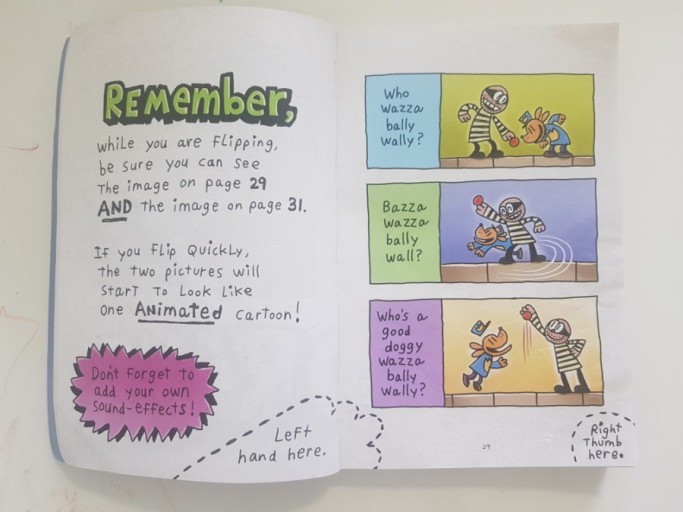 Remember,
while you are Flipping,
be sure you can see
The image on page 29
AND the image on page 31.
If you Flip Quickly,
the two pictures will
Start To Look Like
one Animated cartoon!
Don't Forget to
add your own
sound-effects!
Left
hand here.
Who
wazza
bally
wally?
Bazza
wazza
bally
wall?
Who's a
good
doggy
wazza
bally
wally?
29
Right
Thumb
here.